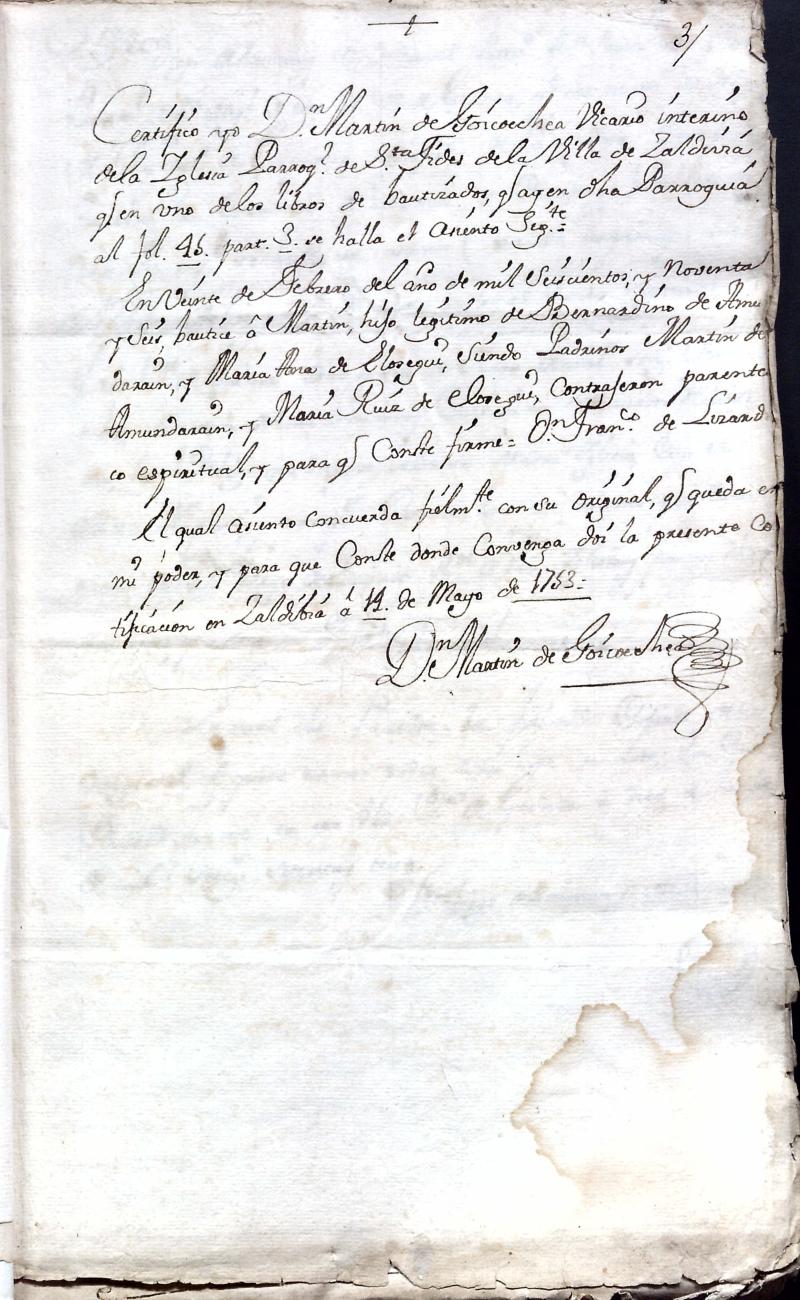 3/
Certifico yo Dn. Martin de Goicoechea Vicario interino
dela Yglesia Parroql. de Sta. Fides dela Villa de Zaldivia
q̃ en uno delos libros de bautizados, q̃ ay en dha Parroquia
al fol. 45. part. 3. se halla el asiento Sigte.=
En Veinte de Febrero del año de mil Seiscientos, y Noventa
y Seis, bautice â Martin, hijo legitimo de Bernardino de Amu
darain, y Maria Ana de Elosegui, Siendo Padrinos Martin de
Amundarain, y Maria Ruiz de Elosegui, Contrajeron parentes
co espiritual, y para q̃ Conste firme= Dn. Franco. de Lizard
El qual asiento Concuerda fielmte. con su original, q̃ queda en
mi poder, y para que Conste donde Convenga doi la presente Ce
tificacion en Zaldibia â 14. de Mayo de 1753=
Dn. Martin de Goicoechea